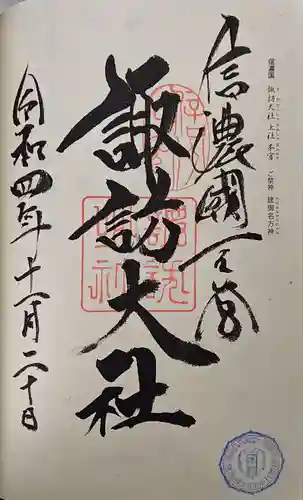 信濃國 諏訪大社 上社 本宮 ご祭神 建御名方神
信濃國一之宮
諏訪大社
令和四年十一月二十日